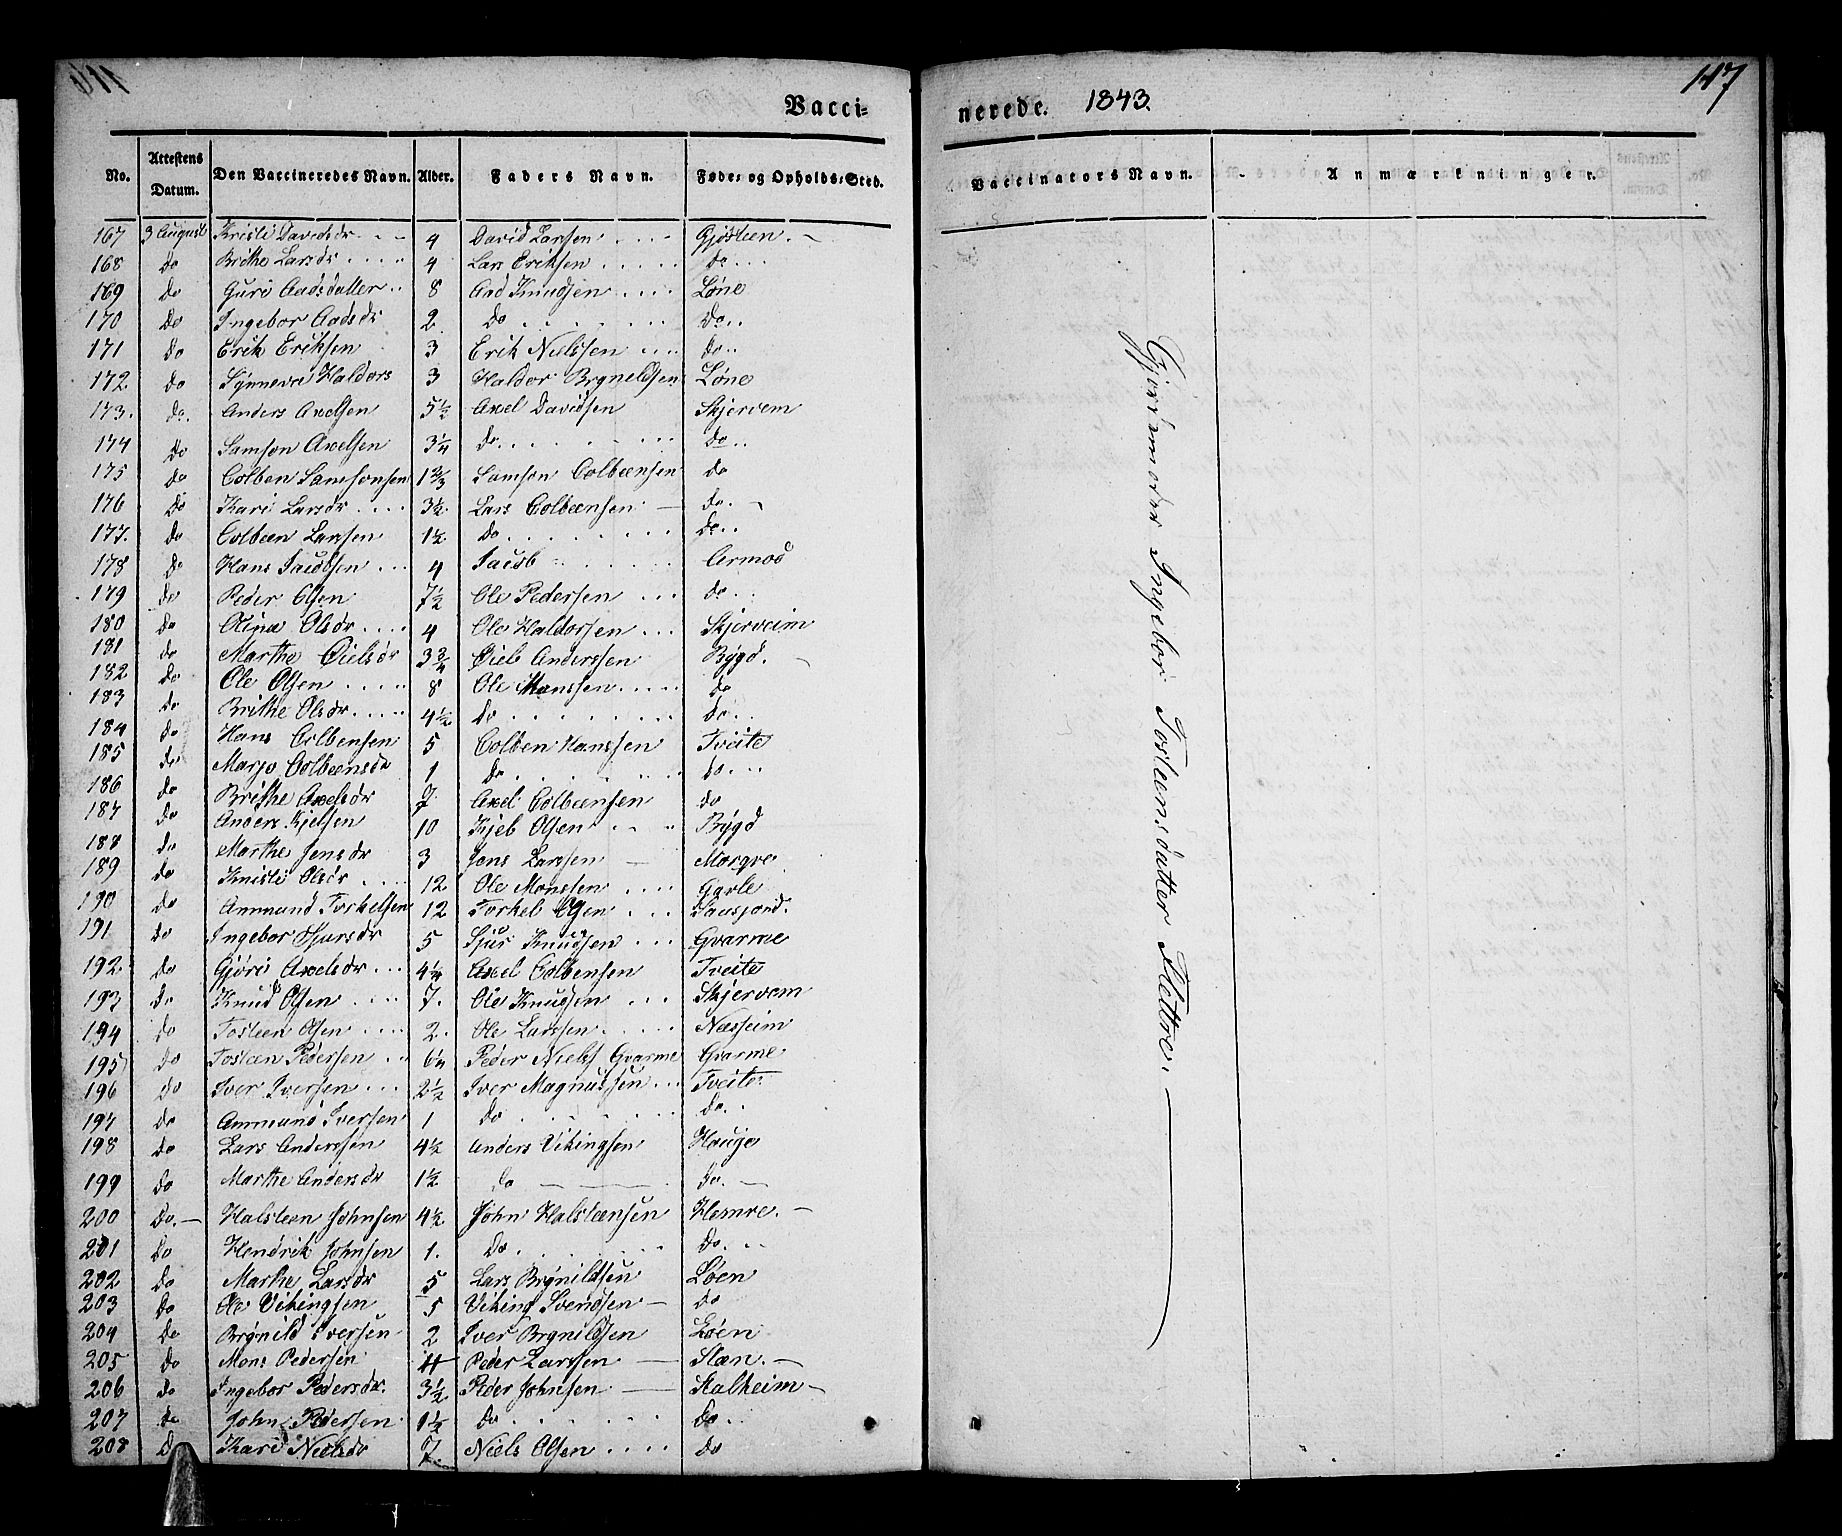 Vacci-
nerede. 1843.
147
No. Attestens Datum. Den Vaccineredes Navn. Alder. Faders Navn. Føde- og Opholds-Sted.
Vaccinators Navn. Anmærkninger.
167 3 August Kristi Davidsdr 4 David Larssen Gjösteen.
168 do Brithe Larsdr 4 Lars Eriksen do
169 do Guri Aadsdatter 8 Aad Knudsen Løne
170 do Ingebor Aadsdr 2 do do
171 do Erik Eriksen 3 Erik Nielssen do
172 do Synneve Haldors 3 Haldor Bryneldsen Løne
173. do. Anders Axelsen 5½ Axel Davidsen Skjervem
174 do Samson Axelsen 3¼ do do
175 do Colben Samsonsen 1⅔ Samson Colbeensen do
176 do Kari Larsdr 3½ Lars Colbeensen do
177. do Colbeen Larssen 1½ do do
178 do Hans Jacobsen 4 Jacob
179 do Peder Olsen 7½ Ole Pedersen do
180 do Olina Olsdr 4 Ole Haldorsen Skjerveim
181 do Marthe 3¾ Anderssen Bÿgd.
182 do Ole Olsen 8 Ole Monssen do
183 do Brithe Olsdr 4½ do do
184 do Hans Colbensen 5 Colben Hanssen Tveite
185 do Marjo Colbeensdr 1 do do
186 do Brithe Axelsdr 7 Axel Colbeensen do
187 do Anders Kjelsen 10 Olsen Bÿgd
188 do Marthe Jensdr 3 Jens Larssen
189 do Kristi Olsdr 12 Ole Monssen
190 do Ammund Torkelsen 12 Torkel Olsen Saasjord.
191 do Ingebor Sjursdr 5 Sjur Knudsen Gvarme
192. do Gjöri Axelsdr 4¼ Axel Colbensen Tveite
193 do Knud Olsen 7. Ole Knudsen Skjervem
194 do Tosteen Olsen 2. Ole Larssen Næsheim
195 do Tosteen Pedersen 6¼ Peder Niels Gvarme Gvarme
196 do Iver Iversen 2½ Iver Magnussen Tveite
197 do Ammund Iversen 1 do do
198 do Lars Anderssen 4½ Anders Vikingsen Hauge
199 do Marthe Andersdr 1½ do do
200 do. Halsteen Johnsen 4½ John Halsteensen Hemre.
201 do Hendrik Johnsen 1. do do
202 do Marthe Larsdr 5 Lars Brÿnildsen Løen
203 do Ole Vikingsen 5 Viking Svendsen do
204 do Brÿnild Iversen 2 Iver Brynildsen Løen
205 do Mons Pedersen 4 Peder Larssen Steen.
206 do Ingebor Pedersdr. 3½ Peder Johnsen Stalheim
207 do John Pedersen 1½ do do
208 do Kari Nielsdr 7. Niels Olsen do
Gjordemoder Ingebor Tosteensdatter Flettre.